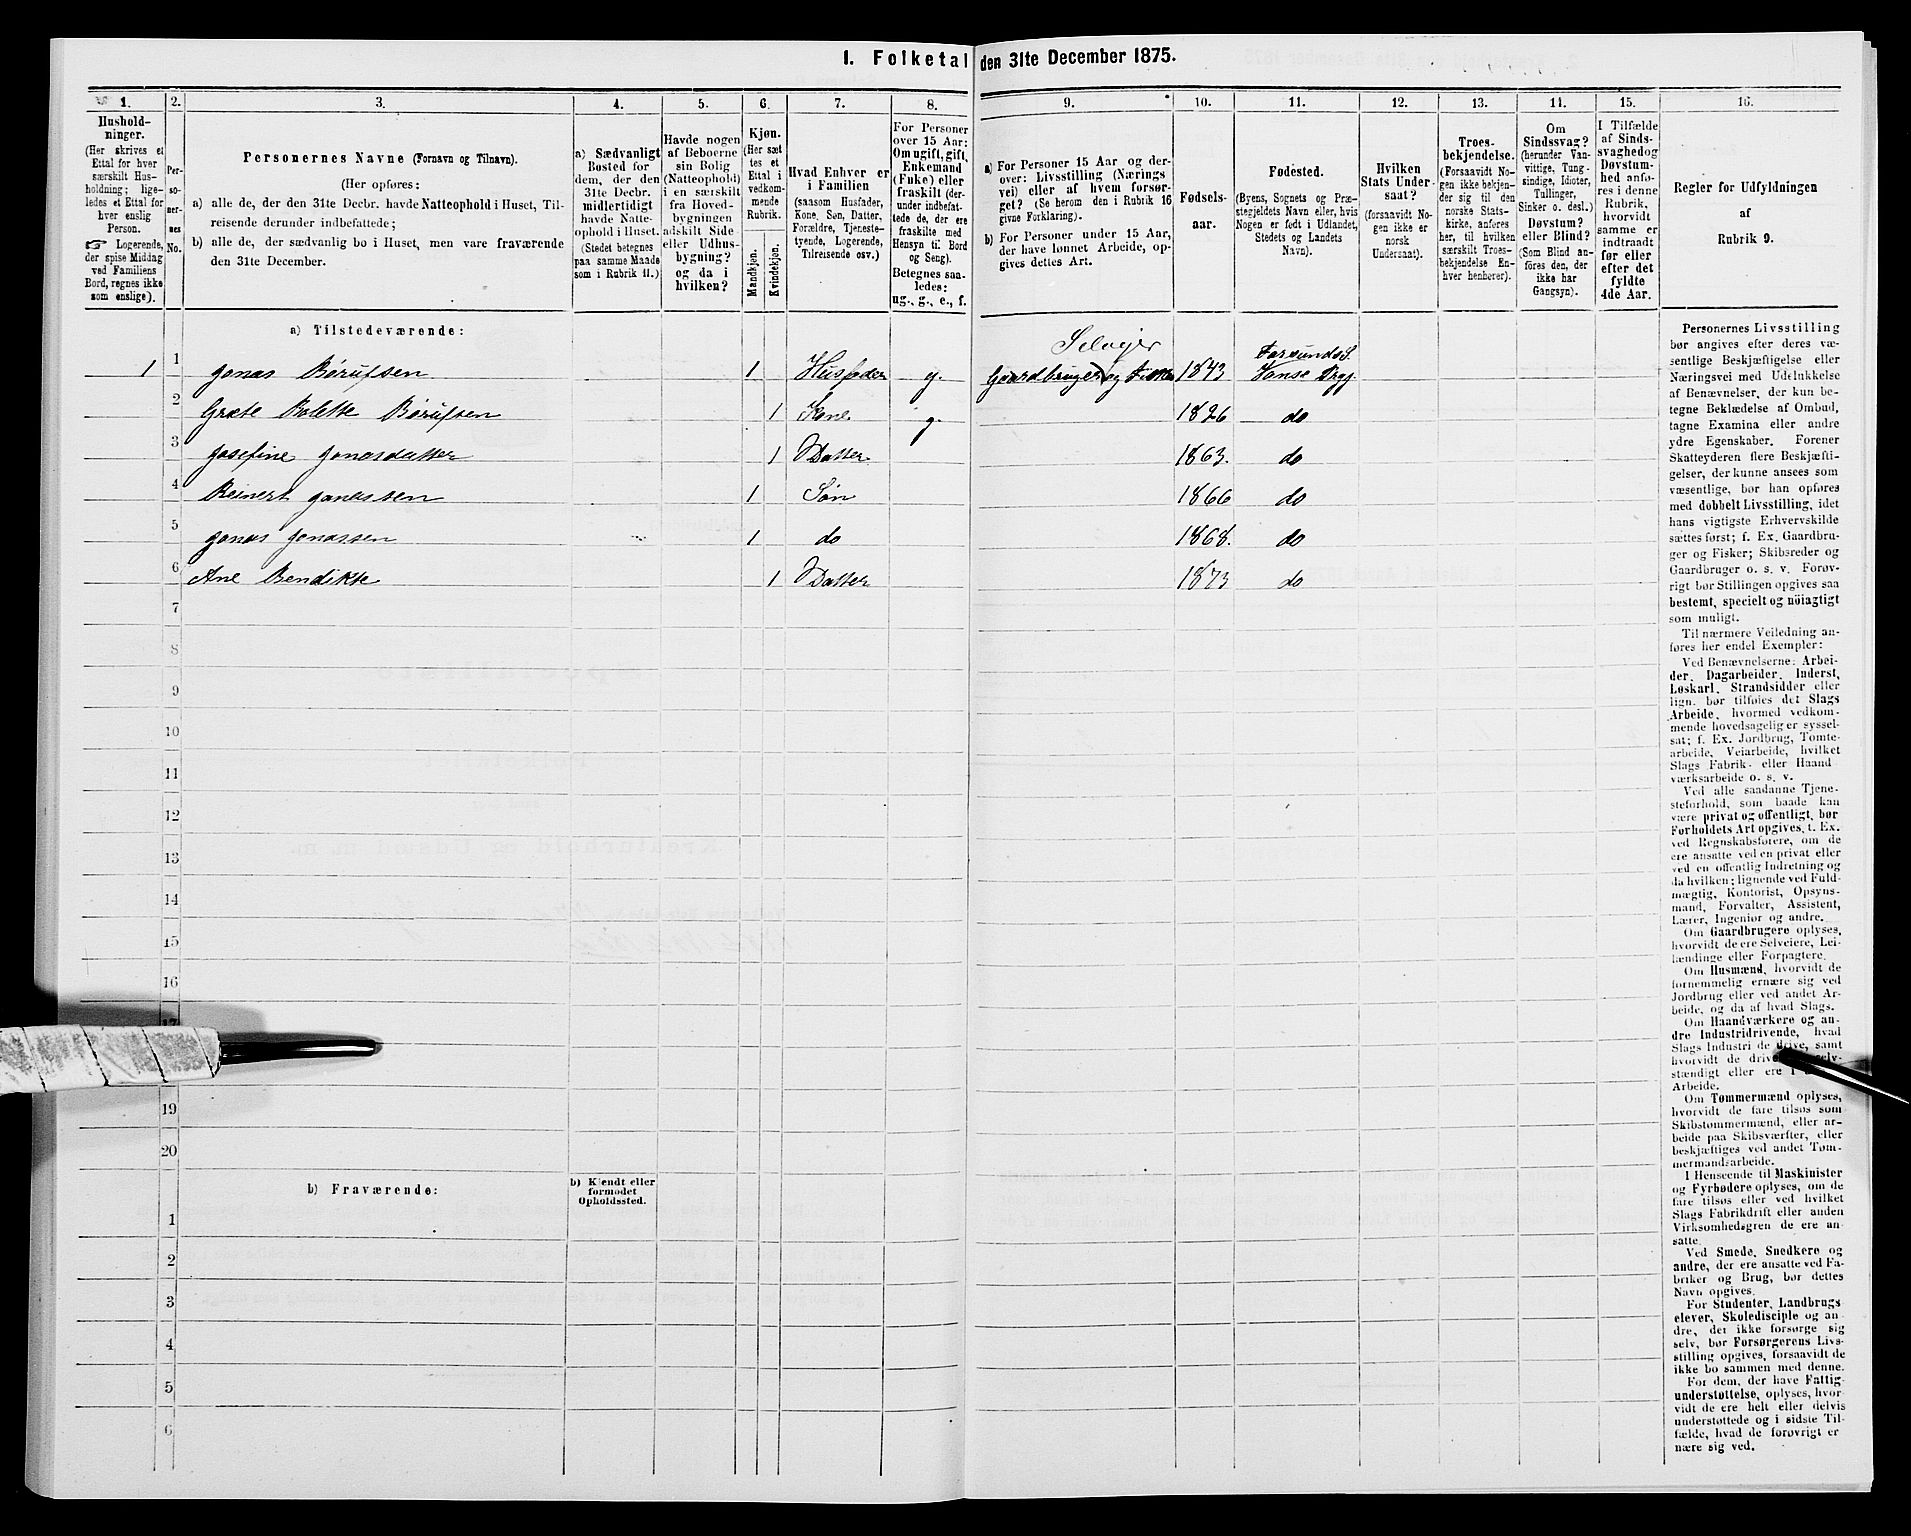 I. Folketal den 31te December 1875.
1. 2. 3. 4. 5. 6. 7. 8. 9. 10. 11. 12. 13. 14. 15. 16.
Hushold-
ninger.
(Her skrives et
Ettal for hver
særskilt Hus-
holdning; lige-
ledes et Ettal for
hver enslig
Person.
☞ Logerende,
der spise Middag
ved Familiens
Bord, regnes ikke
som enslige).
Per-
so-
ner-
nes
No.
Personernes Navne (Fornavn og Tilnavn).
(Her opføres:
a) alle de, der den 31te Decbr. havde Natteophold i Huset, Til-
reisende derunder indbefattede;
b) alle de, der sædvanlig bo i Huset, men vare fraværende
den 31te December.
a) Sædvanligt
Bosted for
dem, der den
31te Decbr.
midlertidigt
havde Natte-
ophold i Huset.
(Stedet betegnes
paa samme Maade
som i Rubrik 11.)
Havde nogen
af Beboerne
sin Bolig
(Natteophold)
i en særskilt
fra Hoved-
bygningen
adskilt Side
eller Udhus-
bygning?
og da i
hvilken?
Kjøn.
(Her sæt-
tes et
Ettal i
vedkom-
mende
Rubrik.
Mandkjøn.
Kvindekjøn.
Hvad Enhver er
i Familien
(saasom Husfader,
Kone, Søn, Datter,
Forældre, Tjeneste-
tyende, Logerende,
Tilreisende osv.)
For Personer
over 15 Aar:
Om ugift, gift,
Enkemand
(Enke) eller
fraskilt (der-
under indbefat-
tede de, der ere
fraskilte med
Hensyn til Bord
og Seng).
Betegnes saa-
ledes:
ug., g., e., f.
a) For Personer 15 Aar og der-
over: Livsstilling (Nærings
vei) eller af hvem forsør-
get? (Se herom den i Rubrik 16
givne Forklaring).
b) For Personer under 15 Aar,
der have lønnet Arbeide, op-
gives dettes Art.
Fødsels-
aar.
Fødested.
(Byens, Sognets og Præ-
stegjeldets Navn eller, hvis
Nogen er født i Udlandet,
Stedets og Landets
Navn).
Hvilken
Stats Under-
saat?
(forsaavidt No-
gen ikke er
norsk
Undersaat).
Troes-
bekjendelse.
(Forsaavidt No-
gen ikke bekjen-
der sig til den
norske Stats-
kirke, anføres
her, til hvilken
særskilt Troes-
bekjendelse En-
hver henhører).
Om
Sindssvag?
(herunder Van-
vittige, Tung-
sindige, Idioter,
Tullinger,
Sinker o. desl.)
Døvstum?
eller Blind?
(Som Blind an-
føres den, der
ikke har
Gangsyn).
I Tilfælde
af Sinds-
svaghed og
Døvstum-
hed anfø-
res i denne
Rubrik,
hvorvidt
samme er
indtraadt
før eller
efter det
fyldte
4de Aar.
Regler for Udfyldningen
af
Rubrik 9.
a) Tilstedeværende:
Selveier
1 1 Jonas Børufsen 1 Husfader g. Gaardbruger og Fisker 1843 Farsunds S. Vanse Prgj.
2 Grete Bolette Børufsen 1 Kone g. 1826 do
3 Josefine Jonasdatter 1 Datter 1863. do
4 Reinert Jonassen 1 Søn 1866 do
5 Jonas Jonassen 1 do 1868. do
6 Ane Bendikte 1 Datter 1873 do
7
8
9
10
11
12
13
14
15
16
17
19
20
b) Fraværende:
b) Kjendt eller
formodet
Opholdssted.
1
2
3
4
5
6
Personernes Livsstilling
bør angives efter deres væ-
sentlige Beskjæftigelse eller
Næringsvei med Udelukkelse
af Benævnelser, der kun be-
tegne Beklædelse af Ombud,
tagne Examina eller andre
ydre Egenskaber. Forener
Skatteyderen flere Beskjæfti-
gelser, der kunne ansees som
væsentlige, bør han opføres
med dobbelt Livsstilling, idet
hans vigtigste Erhvervskilde
sættes først; f. Ex. Gaardbru-
ger og Fisker; Skibsreder og
Gaardbruger o. s. v. Forøv-
rigt bør Stillingen opgives saa
bestemt, specielt og nöiagtigt
som muligt.
Til nærmere Veiledning an-
føres her endel Exempler:
Ved Benævnelserne: Arbei-
der, Dagarbeider, Inderst,
Løskarl, Strandsidder eller
lign. bør tilføies det Slags
Arbeide, hvormed vedkom-
mende hovedsagelig er syssel-
sat; f. Ex. Jordbrug, Tomte-
arbeide, Veiarbeide, hvilket
Slags Fabrik- eller Haand
værksarbeide o. s. v.
Ved alle saadanne Tjene-
steforhold, som baade kan
være privat og offentligt, bør
Forholdets Art opgives, t. Ex.
ved Regnskabsførere, om de
ere ansatte ved en privat eller
ved en offentlig Indretning og
da hvilken; lignende ved Fuld-
mægtig, Kontorist, Opsyns-
mand, Forvalter, Assistent,
Lærer, Ingeniør og andre.
Om Gaardbrugere oplyses,
hvorvidt de ere Selveiere, Lei-
lændinge eller Forpagtere.
Om Husmænd, hvorvidt de
fornemmelig ernære sig ved
Jordbrug eller ved andet Ar-
beide, og da af hvad Slags.
Om Haandværkere og an-
dre Industridrivende, hvad
Slags Industri de drive, samt
hvorvidt de drive selv-
stændigt eller ere i
Arbeide.
Om Tømmermænd oplyses,
hvorvidt de fare tilsøs som
Skibstømmermænd, eller ar-
beide paa Skibsværfter, eller
beskjæftiges ved andet Tøm-
mermandsarbeide.
I Henseende til Maskinister
og Fyrbødere oplyses, om de
fare tilsøs eller ved hvilket
Slags Fabrikdrift eller anden
Virksomhedsgren de ere an-
satte.
Ved Smede, Snedkere og
andre, der ere ansatte ved Fa-
briker og Brug, bør dettes
Navn opgives.
For Studenter, Landbrugs
elever, Skoledisciple og an-
dre, der ikke forsørge sig
selv, bør Forsørgerens Livs-
stilling opgives, forsaavidt de
ikke bo sammen med denne.
For dem, der have Fattig-
understøttelse, oplyses, hvor-
vidt de ere helt eller delvis
understøttede og i sidste Til-
fælde, hvad de forøvrigt er
nære sig ved.